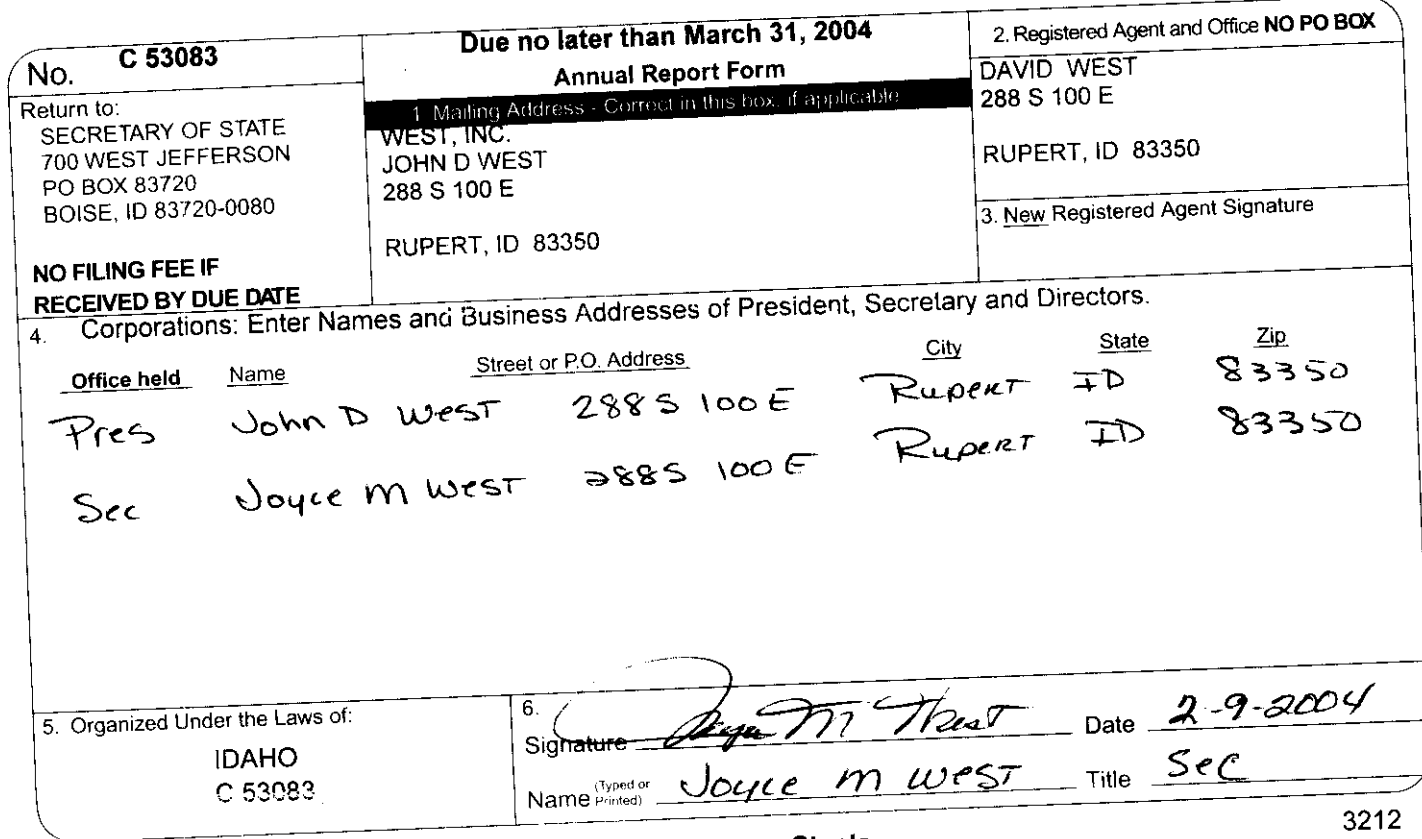 No. C 53083
Return to:
SECRETARY OF STATE
700 WEST JEFFERSON
PO BOX 83720
BOISE, ID 83720-0080
NO FILING FEE IF
RECEIVED BY DUE DATE
Due no later than March 31, 2004
Annual Report Form
1 Mailing Address - Correct in this box, if applicable
WEST, INC.
JOHN D WEST
288 S 100 E
RUPERT, ID 83350
2. Registered Agent and Office NO PO BOX
DAVID WEST
288 S 100 E
RUPERT, ID 83350
3. New Registered Agent Signature
4. Corporations: Enter Names and Business Addresses of President, Secretary and Directors.
Office held Name Street or P.O. Address City State Zip
Pres John D West 288 S 100 E Rupert ID 83350
Sec Joyce M West 288 S 100 E Rupert ID 83350
5. Organized Under the Laws of:
IDAHO
C 53083
6.
Signature Joyce M West Date 2-9-2004
Name (Typed or Printed) Joyce M West Title Sec
3212